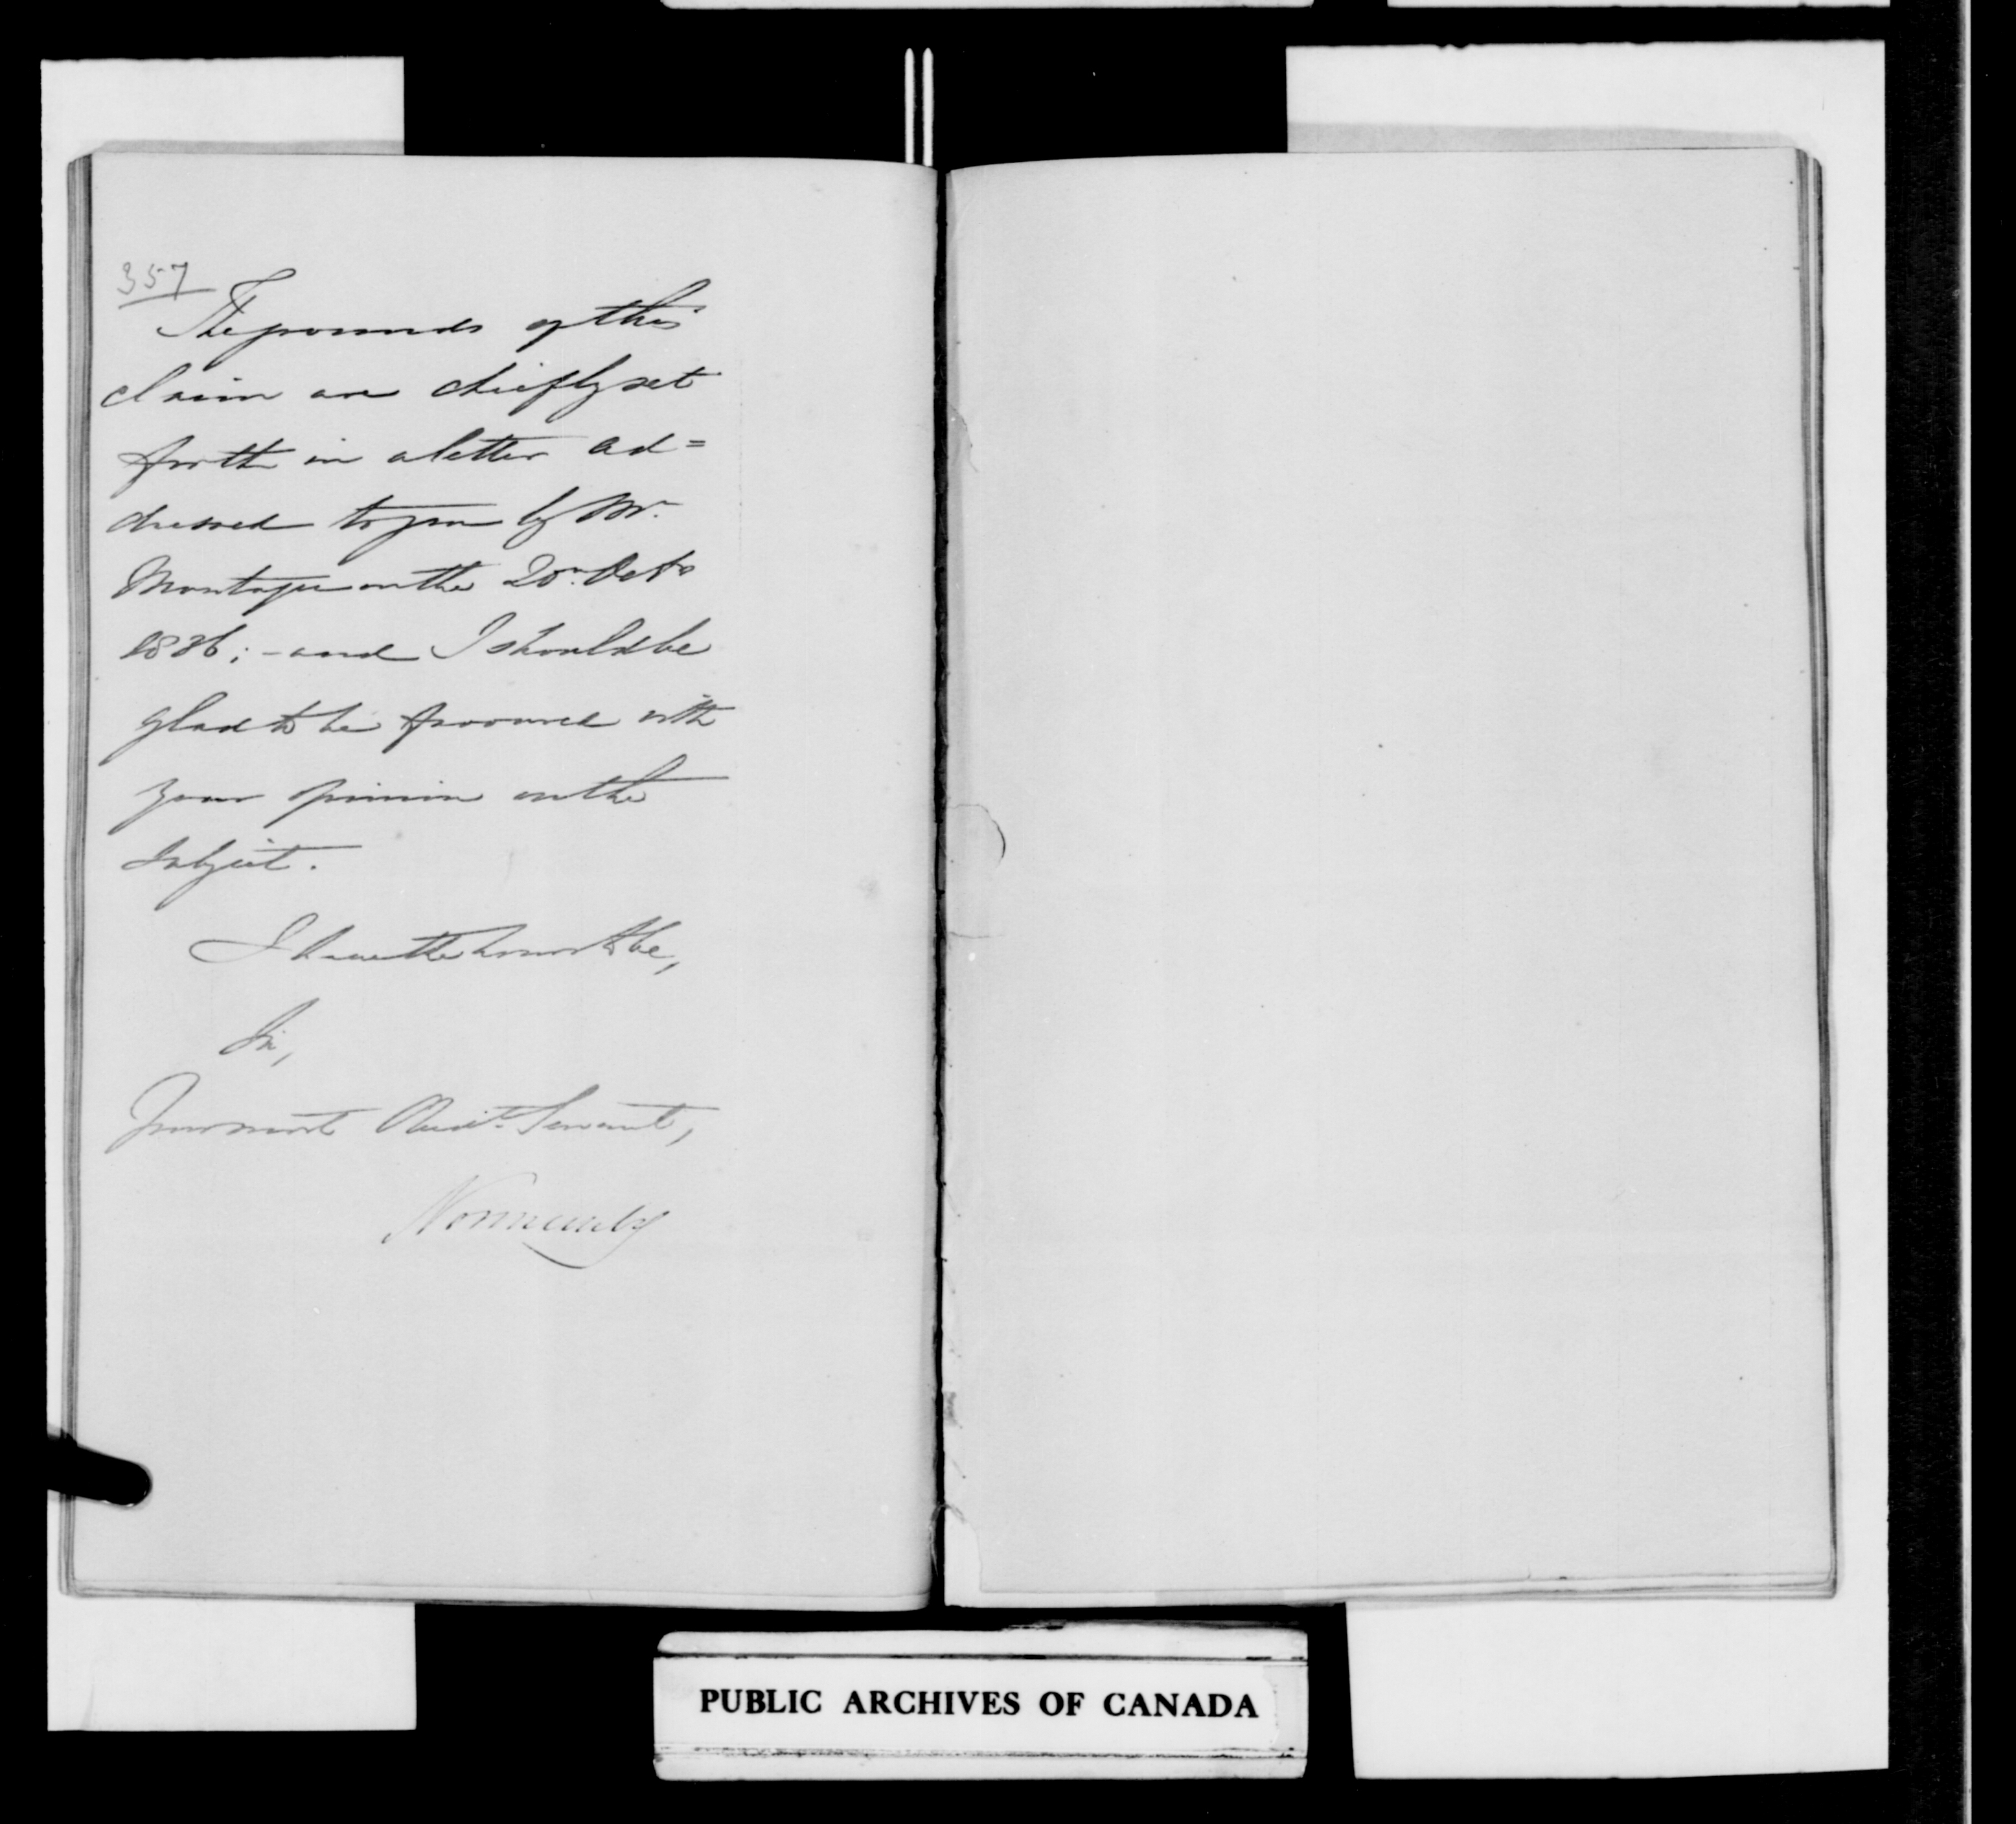 357
The grounds of this
claim are chiefly set
forth in a letter ad=
dressed to you by Mr.
Montague on the 20th Octr
1836; - and I should be
glad to be favoured with
your opinion on the
subject.
I have the honor to be,
Sir,
Your most Obedt. Servant,
Normanby
PUBLIC ARCHIVES OF CANADA